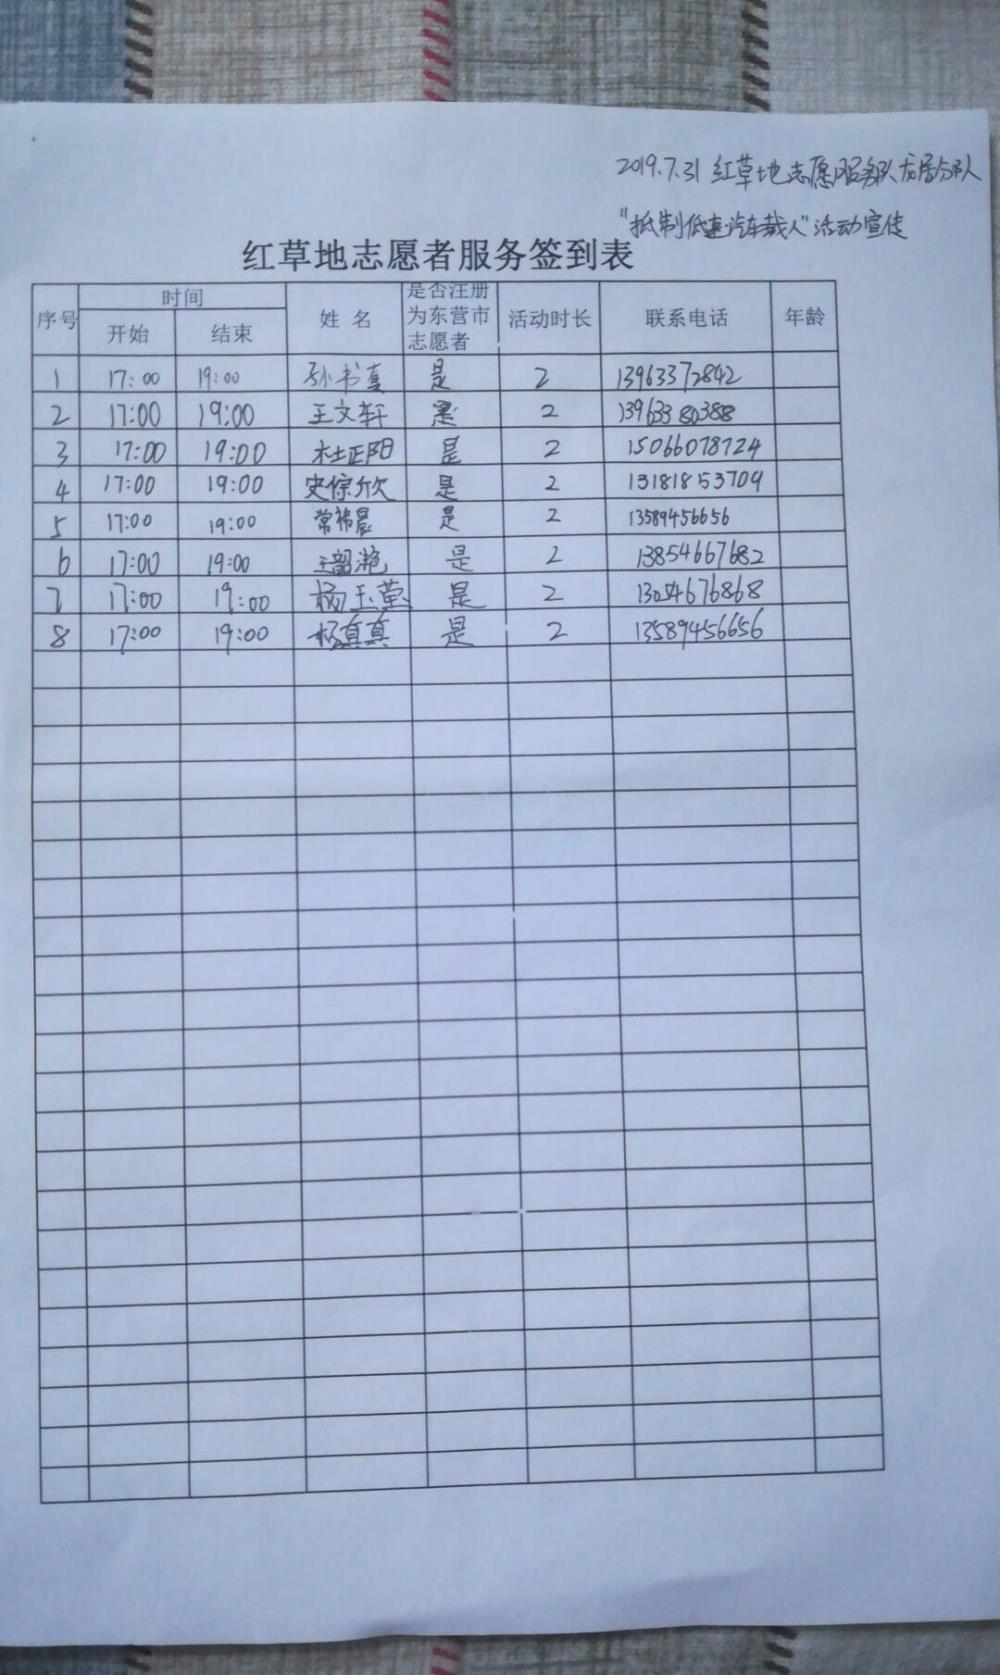 2019.7.31 红草地志愿服务队龙居分队
"抵制低速汽车载人"活动宣传
红草地志愿者服务签到表
序号 时间 开始 结束 姓 名 是否注册为东营市志愿者 活动时长 联系电话 年龄
1 17:00 19:00 孙书真 是 2 13963372842
2 17:00 19:00 王文轩 是 2 13963380388
3 17:00 19:00 杜正阳 是 2 15066078724
4 17:00 19:00 史倧欣 是 2 13181853709
5 17:00 19:00 常祎晨 是 2 13589456656
6 17:00 19:00 王韶滟 是 2 13854667682
7 17:00 19:00 杨玉莹 是 2 13054676868
8 17:00 19:00 杨真真 是 2 13589456656